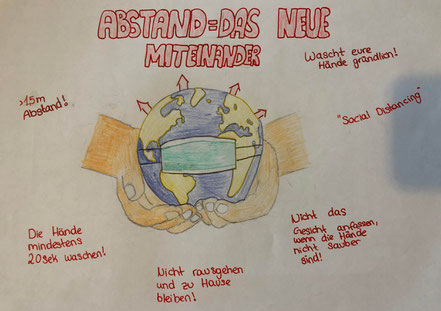 ABSTAND=DAS NEUE
MITEINANDER
Wascht eure
Hände gründlich!
>1,5m
Abstand!
"Social Distancing"
Die Hände
mindestens
20sek waschen!
Nicht das
Gesicht anfassen,
wenn die Hände
nicht sauber
sind!
Nicht rausgehen
und zu Hause
bleiben!